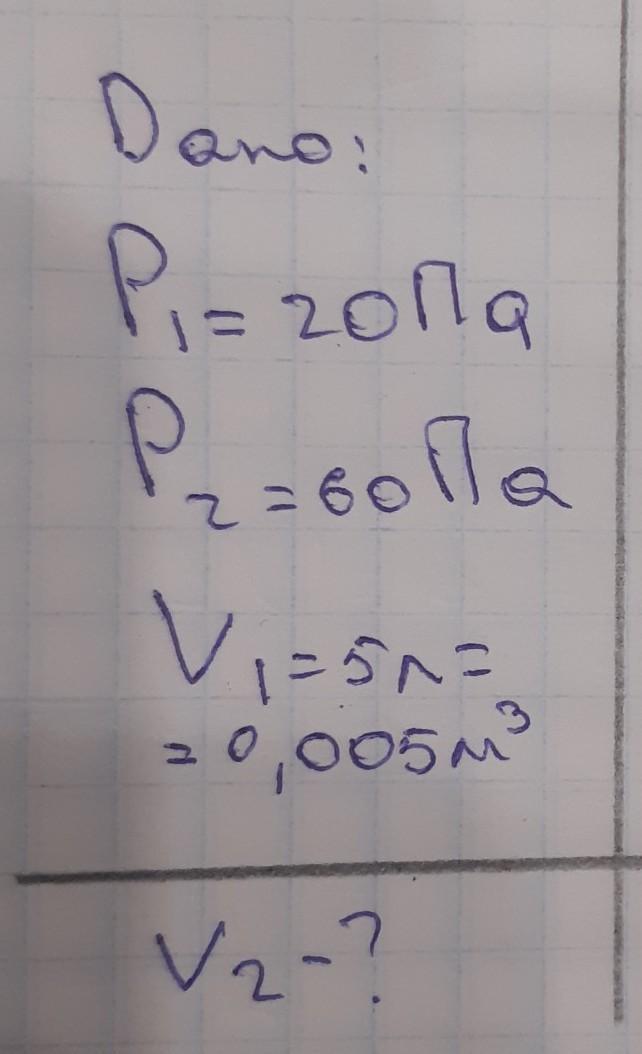 Дано:
P₁ = 20 Па
P₂ = 60 Па
V₁ = 5 л =
= 0,005 м³
V₂ - ?